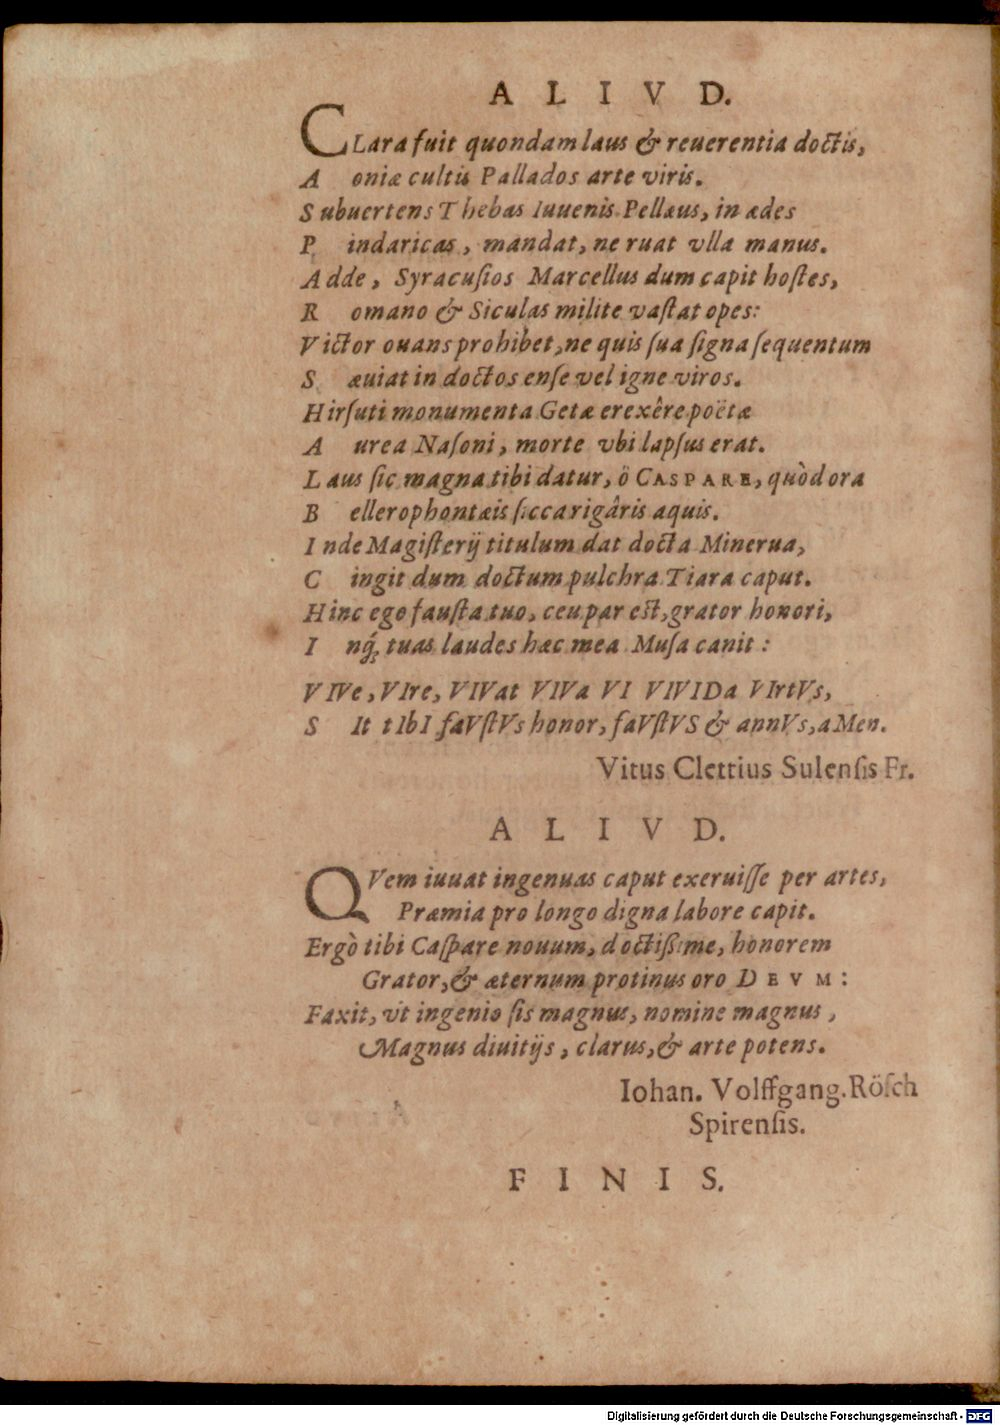 A L I V D.
CLara fuit quondam laus & reuerentia doctis,
A oniæ cultis Pallados arte viris.
S ubuertens Thebas Iuuenis Pellæus, in ædes
P indaricas, mandat, ne ruat vlla manus.
A dde, Syracuſios Marcellus dum capit hoſtes,
R omano & Siculas milite vaſtat opes:
V ictor ouans prohibet, ne quis ſua ſigna ſequentum
S æuiat in doctos enſe vel igne viros.
H irſuti monumenta Getæ erexêre poëtæ
A urea Naſoni, morte vbi lapſus erat.
L aus ſic magna tibi datur, ô CASPARE, quòd ora
B ellerophontæis ſicca rigâris aquis.
I nde Magiſterij titulum dat docta Minerua,
C ingit dum doctum pulchra Tiara caput.
H inc ego fauſta tuo, ceu par est, grator honori,
I nq́; tuas laudes hæc mea Muſa canit:
V IVe, VIre, VIVat VIVa VI VIVIDa VIrtVs,
S It tIbI faVſtVs honor, faVſtVS & annVs, aMen.
Vitus Clettius Sulenſis Fr.
A L I V D.
QVem iuuat ingenuas caput exeruiſſe per artes,
Præmia pro longo digna labore capit.
Ergò tibi Caſpare nouum, doctißime, honorem
Grator, & æternum protinus oro DEVM:
Faxit, vt ingenio ſis magnus, nomine magnus,
Magnus diuitijs, clarus, & arte potens.
Iohan. Volffgang. Röſch
Spirenſis.
F I N I S.
Digitalisierung gefördert durch die Deutsche Forschungsgemeinschaft - DFG